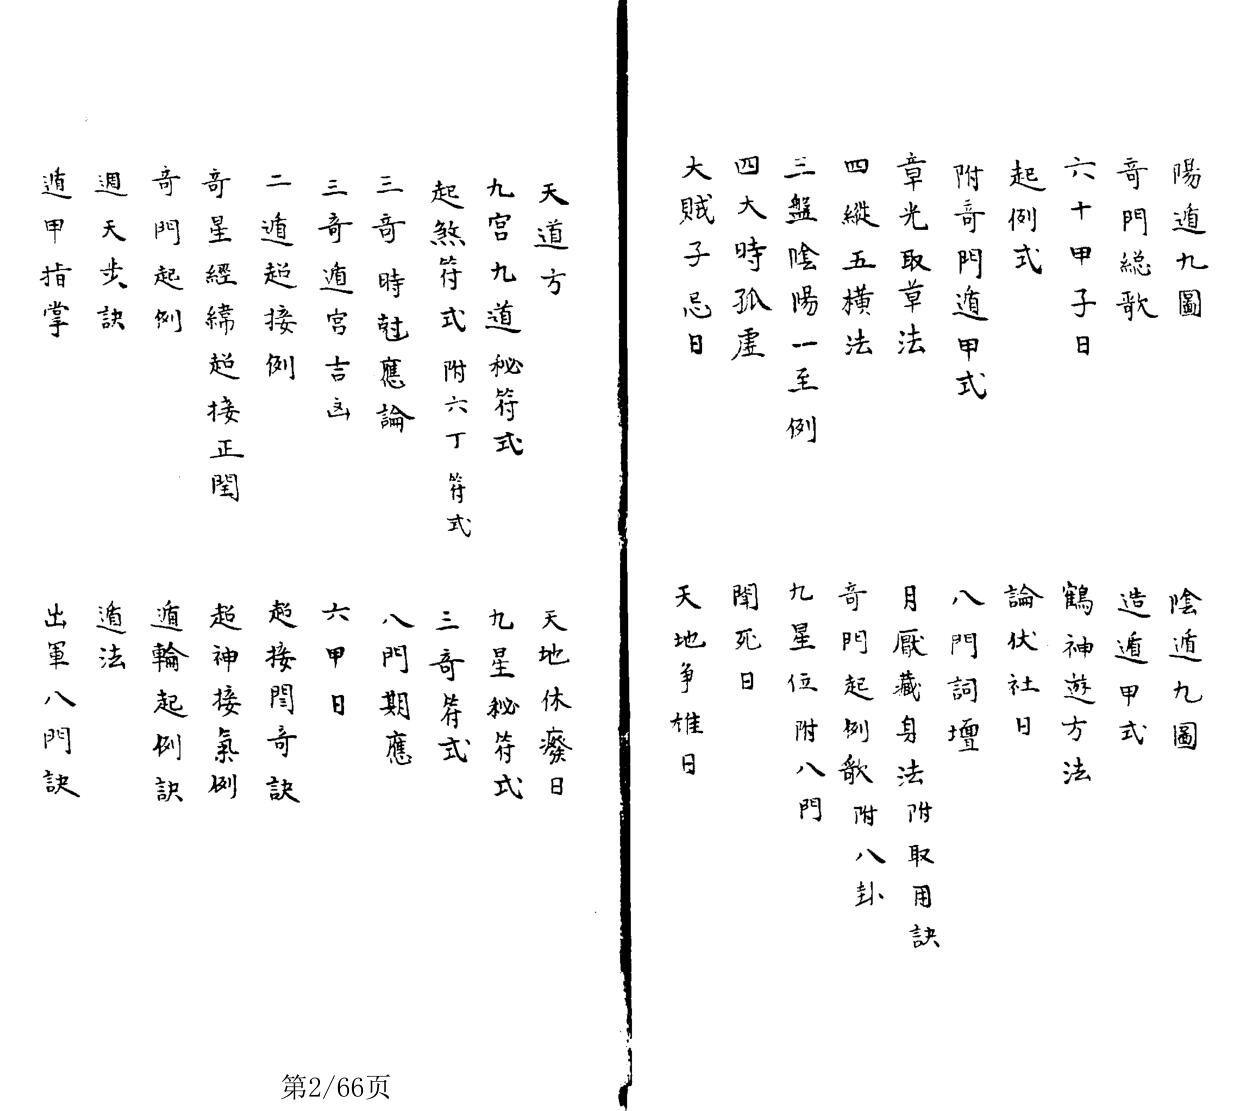 陽遁九圖
奇門總歌
六十甲子日
起例式
附奇門遁甲式
章光取草法
四縱五橫法
三盤陰陽一至例
四大時孤虛
大賊子忌日
陰遁九圖
造遁甲式
鶴神遊方法
論伏社日
八門詞壇
月厭藏身法附取用訣
奇門起例歌附八卦
九星位附八門
聞死日
天地争雄日
天道方
九宮九道秘符式
起煞符式附六丁符式
三奇時尅應論
三奇遁宮吉凶
二遁超接例
奇星經緯超接正閏
奇門起例
週天步訣
遁甲指掌
天地休癈日
九星秘符式
三奇符式
八門期應
六甲日
超接閏奇訣
超神接氣例
遁輪起例訣
遁法
出軍八門訣
第2/66页